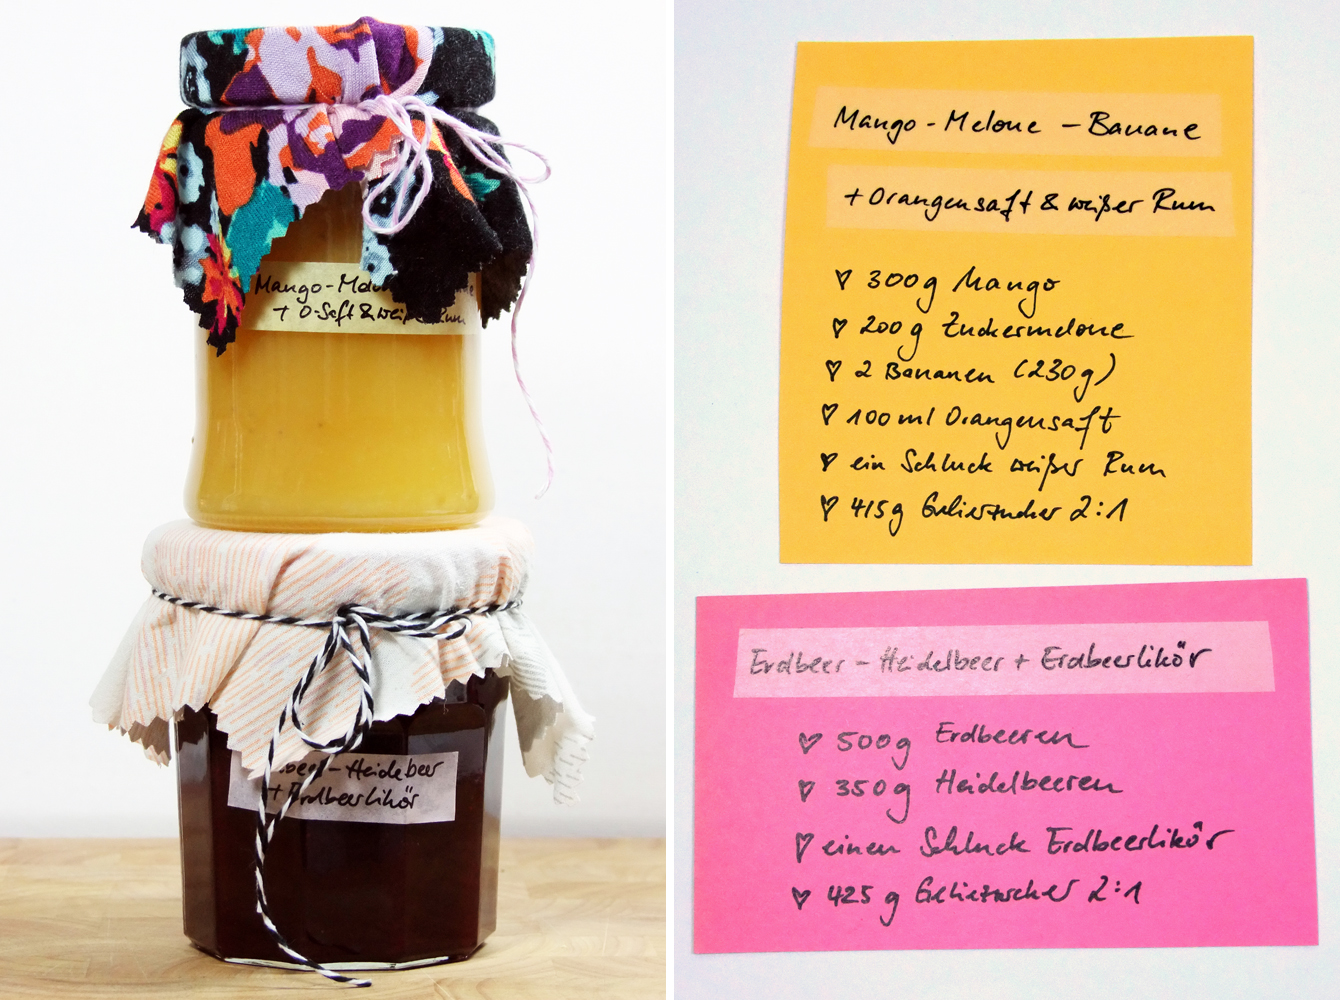 Mango-Melone
+ O-Saft & weißer Rum
Heidelbeer
+ Erdbeerlikör
Mango-Melone-Banane
+ Orangensaft & weißer Rum
♥ 300g Mango
♥ 200g Zuckermelone
♥ 2 Bananen (230g)
♥ 100ml Orangensaft
♥ ein Schluck weißer Rum
♥ 415g Gelierzucker 2:1
Erdbeer-Heidelbeer + Erdbeerlikör
♥ 500g Erdbeeren
♥ 350g Heidelbeeren
♥ einen Schluck Erdbeerlikör
♥ 425g Gelierzucker 2:1